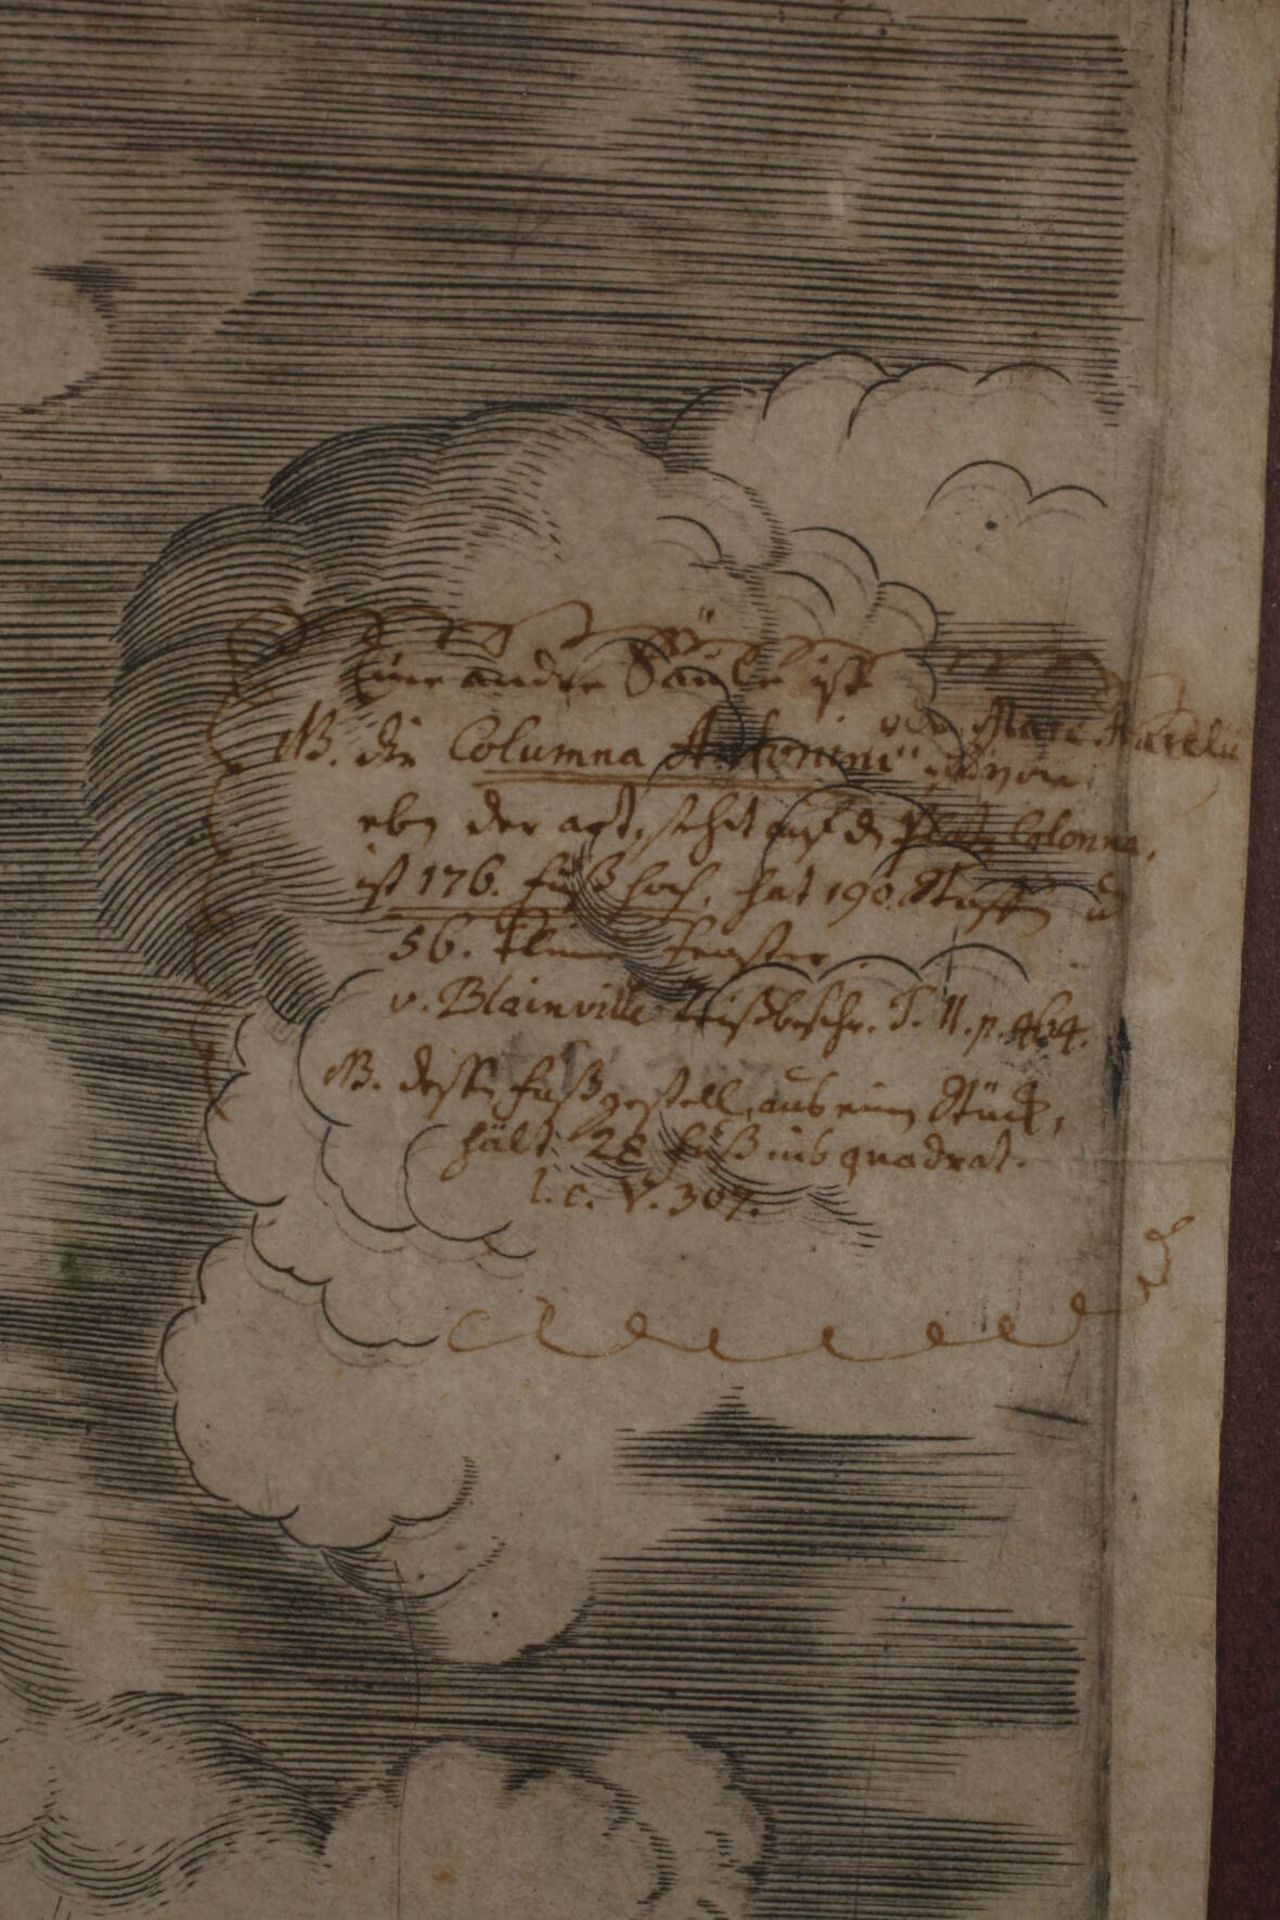 Eine andre Säule ist
NB. die Columna Antonini oder Marc. Aurelii
eben der art, steht auf dem Platz Colonna,
ist 176. Fuß hoch, hat 190. Stuffen u
56. kleine Fenster
v. Blainville Reißbeschr. T. II. p.
NB. desse Fußgestell, aus einem Stück,
hält 28 Fuß ins quadrat.
l. c. p. 307.